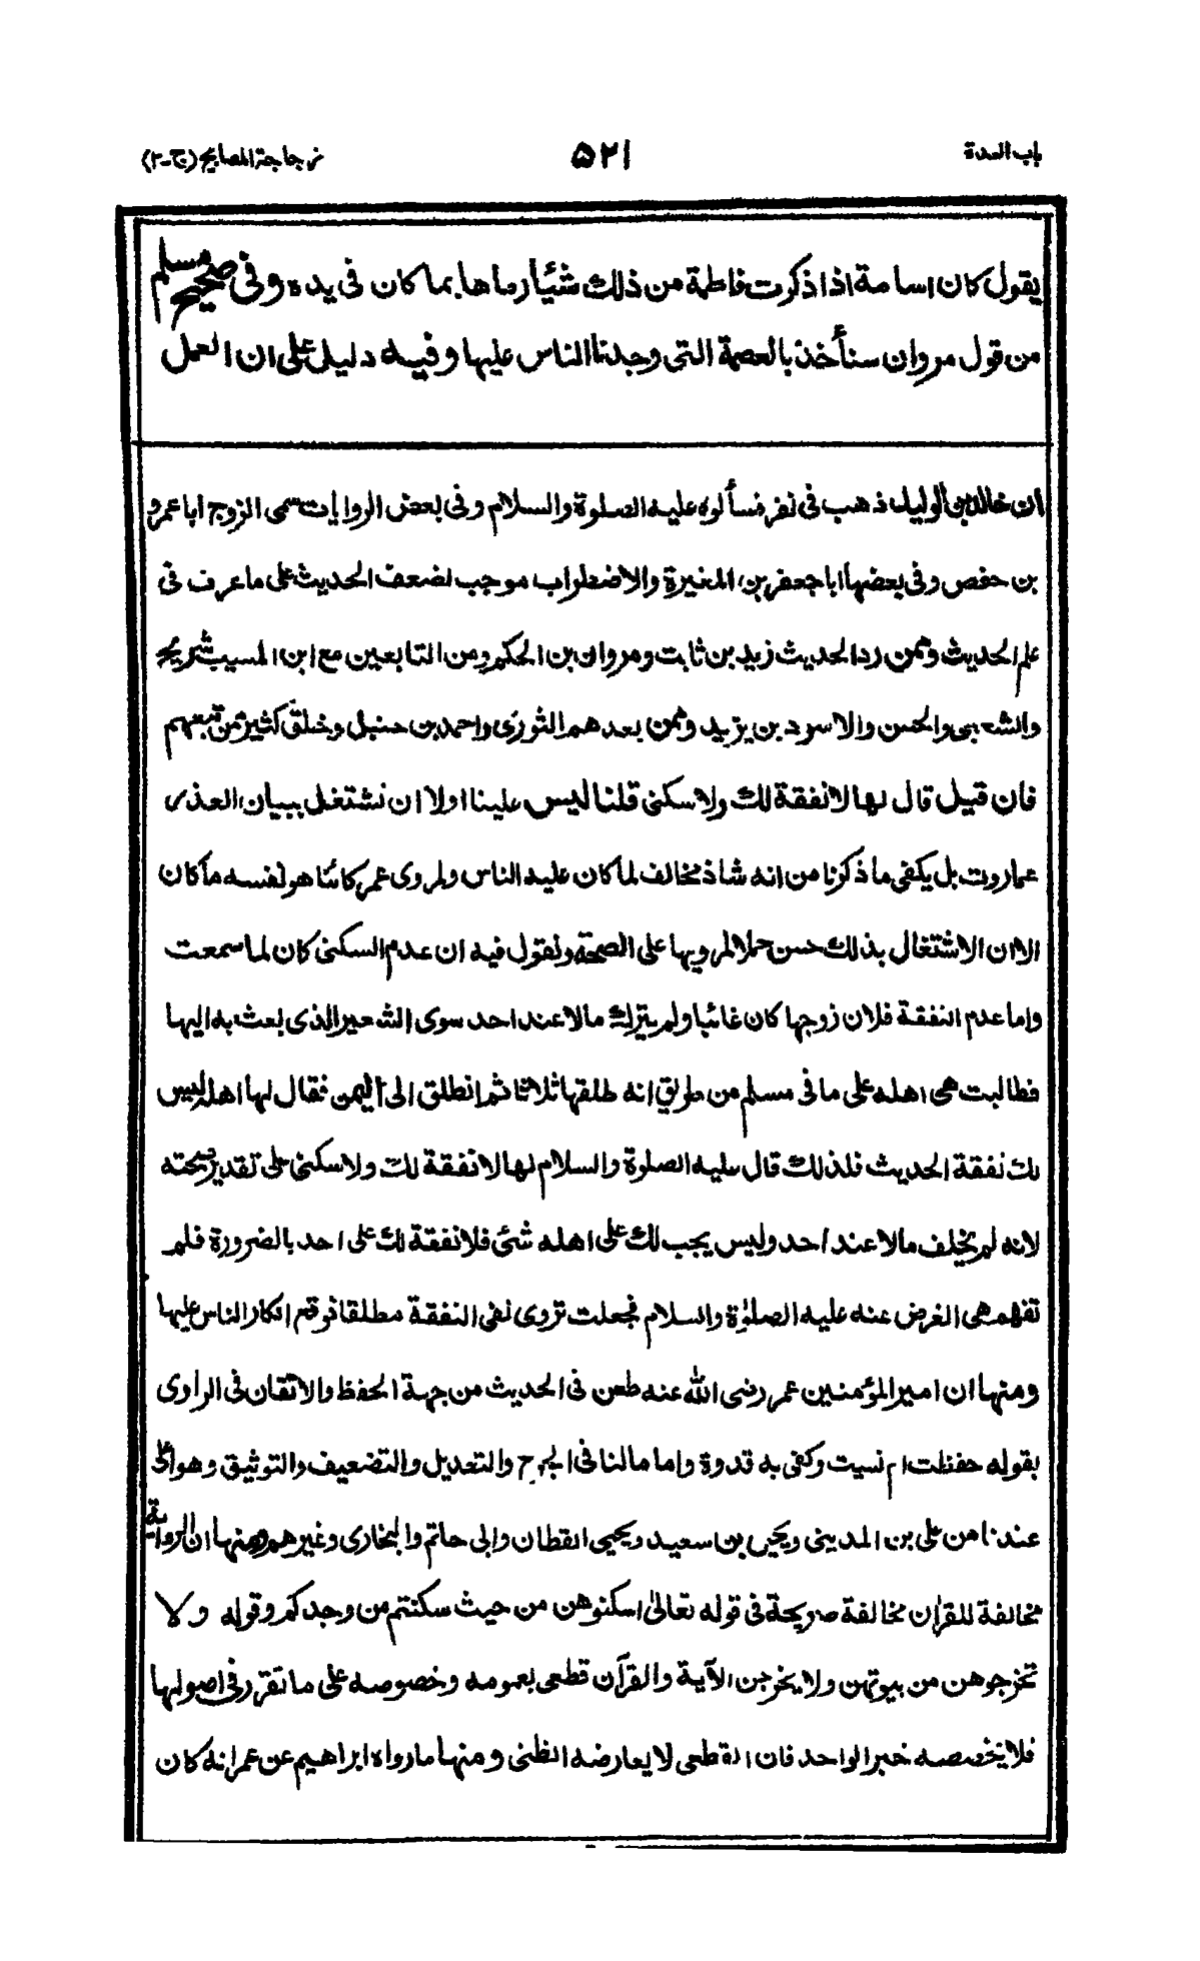 باب العدة
٥٢١
زجاجة المصابيح (ج-٢)
يقول كان اسامة اذا ذكرت فاطمة من ذلك شيئا رماها بما كان فى يده وفى صحيح مسلم
من قول مروان سنأخذ بالعصمة التى وجدنا الناس عليها وفيه دليل على ان العمل
ان خالد بن الوليد ذهب فى نفر فسألوه عليه الصلوة والسلام وفى بعض الروايات سمى الزوج ابا عمرو
بن حفص وفى بعضها ابا جعفر بن المغيرة والاضطراب موجب لضعف الحديث على ما عرف فى
علم الحديث وممن رد الحديث زيد بن ثابت ومروان بن الحكم ومن التابعين مع ابن المسيب شريح
والشعبى والحسن والاسود بن يزيد وممن بعدهم الثورى واحمد بن حنبل وخلق كثير من تبعهم
فان قيل قال لها لا نفقة لك ولا سكنى قلنا ليس علينا اولا ان نشتغل ببيان العذر
عما روت بل يكفى ما ذكرنا من انه شاذ مخالف لما كان عليه الناس ولمروى عمر كائنا هو لنفسه ما كان
الا ان الاشتغال بذلك حسن حملا لمرويها على الصحة ونقول فيه ان عدم السكنى كان لما سمعت
واما عدم النفقة فلان زوجها كان غائبا ولم يترك مالا عند احد سوى الشعير الذى بعث به اليها
فطالبت هى اهله على ما فى مسلم من طريق انه طلقها ثلاثا ثم انطلق الى اليمن فقال لها اهله ليس
لك نفقة الحديث فلذلك قال عليه الصلوة والسلام لها لا نفقة لك ولا سكنى على تقدير صحته
لانه لم يخلف مالا عند احد وليس يجب لك على اهله شئ فلا نفقة لك على احد بالضرورة فلم
تفهم هى الغرض عنه عليه الصلوٰة والسلام فجعلت تروى نفى النفقة مطلقا فوقع انكار الناس عليها
ومنها ان امير المؤمنين عمر رضى الله عنه طعن فى الحديث من جهة الحفظ والاتقان فى الراوى
بقوله حفظت ام نسيت وكفى به قدوة واماما لنا فى الجرح والتعديل والتضعيف والتوثيق وهو اعلى
عندنا من على بن المدينى ويحيى بن سعيد ويحيى القطان وابى حاتم والبخارى وغيرهم ومنها ان الرواية
مخالفة للقران مخالفة صريحة فى قوله تعالىٰ اسكنوهن من حيث سكنتم من وجدكم وقوله ولا
تخرجوهن من بيوتهن ولا يخرجن الآية والقرآن قطعى بعمومه وخصوصه على ما تقرر فى اصولها
فلا يخصصه خبر الواحد فان القطعى لا يعارضه الظنى ومنها ما رواه ابراهيم عن عمر انه كان